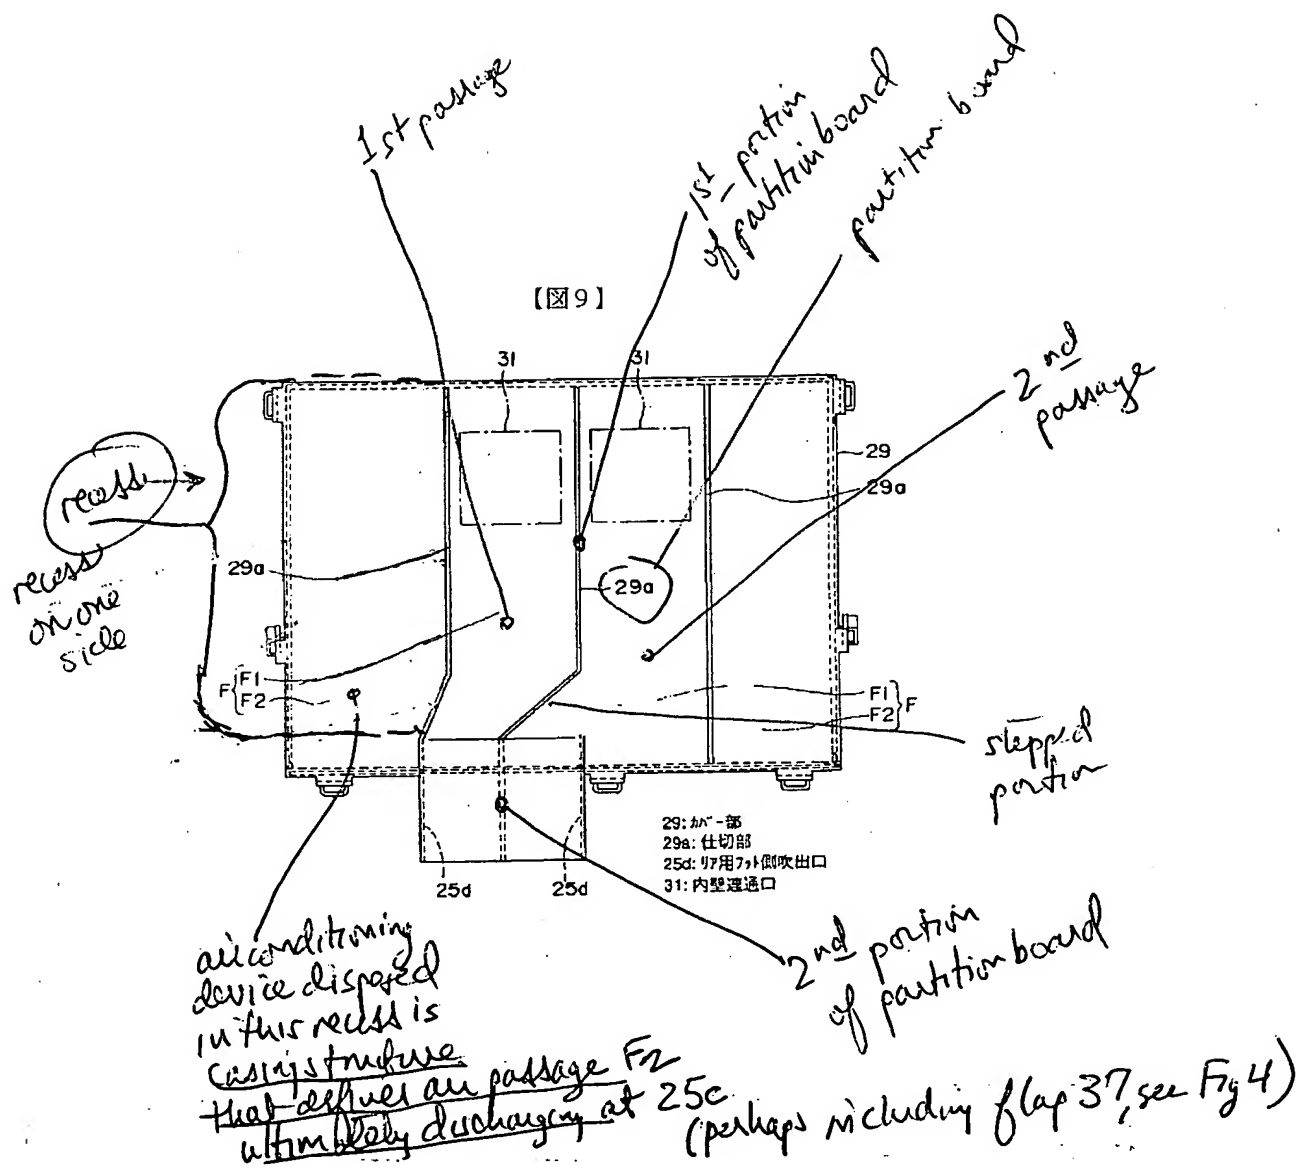 1st passage
1st portion
of partition board
partition board
【図9】
31
31
2nd
passage
29
29a
recess
recess
on one
side
29a
29a
F1
F2
F
F1
F2
F
stepped
portion
29: カバー部
29a: 仕切部
25d: リア用フット側吹出口
31: 内壁連通口
25d
25d
air conditioning
device disposed
in this recess is
casing structure
that defines air passage F2
ultimately discharging at 25c
(perhaps including flap 37, see Fig 4)
2nd portion
of partition board